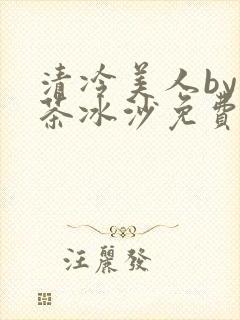 清冷美人by
茶冰沙免費
汪麗發